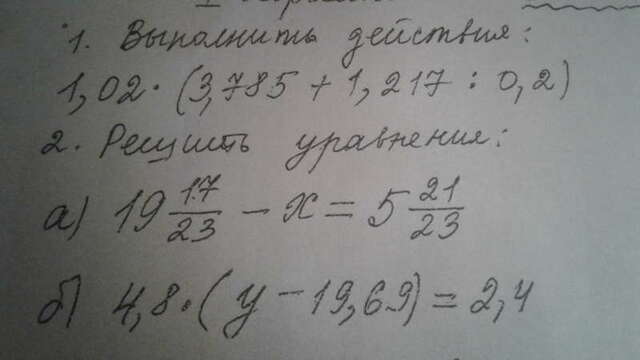 1. Выполнить действия:
1,02·(3,785 + 1,217 : 0,2)
2. Решить уравнения:
а) 19 17/23 - x = 5 21/23
б) 4,8·(y - 19,69) = 2,4